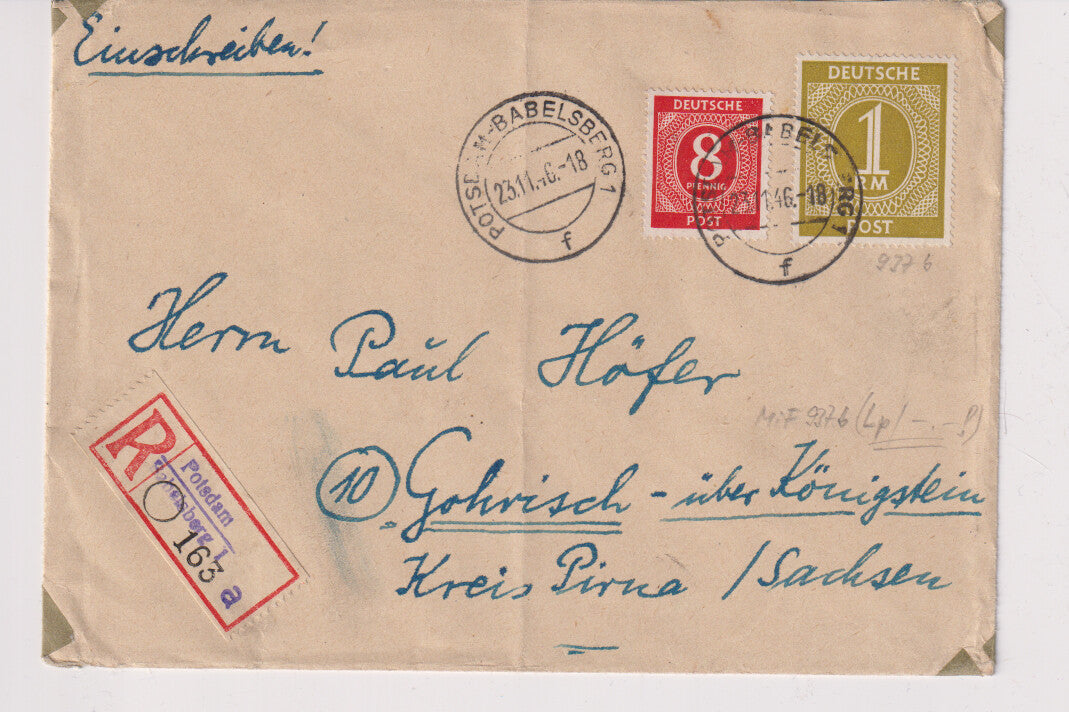 Einschreiben!
POTSDAM-BABELSBERG 1
23.11.46.-18
f
DEUTSCHE
8
PFENNIG
POST
DEUTSCHE
1
RM
POST
BABELS RG 1
23. 1.46.-18
f
937 b
Herrn Paul Höfer
MiF 937b (Lp/-.-P)
R
Potsdam
Babelsberg 1
163
a
10 Gohrisch - über Königstein
Kreis Pirna /Sachsen